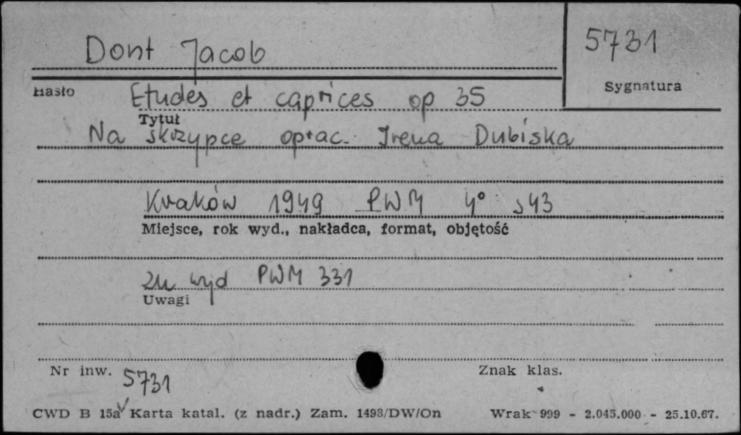 Dont Jacob
5731
Hasło
Sygnatura
Etudes et caprices op 35
Tytuł
Na skrzypce oprac. Irena Dubiska
Kraków 1949 PWM 4° s43
Miejsce, rok wyd., nakładca, format, objętość
zn wyd PWM 331
Uwagi
Nr inw. 5731
Znak klas.
CWD B 15a Karta katal. (z nadr.) Zam. 1493/DW/On Wrak 999 - 2.045.000 - 25.10.67.